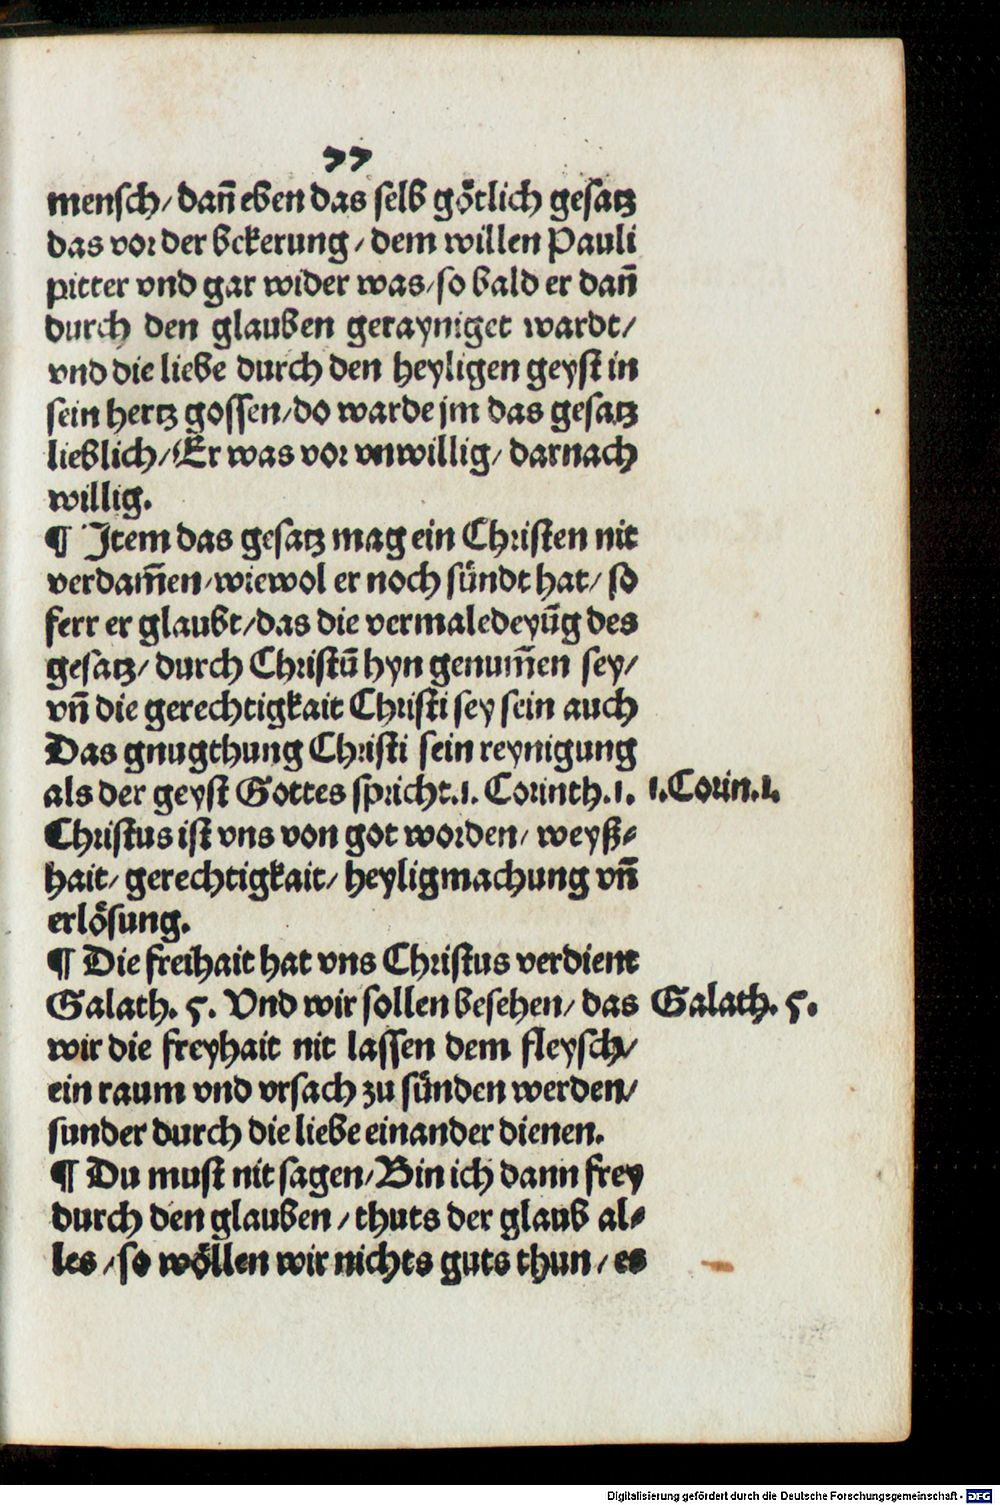 77
mensch/ dañ eben das selb götlich gesatz
das vor der bekerung/ dem willen Pauli
pitter vnd gar wider was/ so bald er dañ
durch den glauben gerayniget wardt/
vnd die liebe durch den heyligen geyst in
sein hertz gossen/ do warde jm das gesatz
lieblich/ Er was vor vnwillig/ darnach
willig.
¶ Item das gesatz mag ein Christen nit
verdam̃en/ wiewol er noch sündt hat/ so
ferr er glaubt/ das die vermaledeyūg des
gesatz/ durch Christū hyn genum̃en sey/
vñ die gerechtigkait Christi sey sein auch
Das gnugthung Christi sein reynigung
als der geyst Gottes spricht.1. Corinth.1. 1.Corin.1.
Christus ist vns von got worden/ weyß⸗
hait/ gerechtigkait/ heyligmachung vñ
erlösung.
¶ Die freihait hat vns Christus verdient
Galath. 5. Vnd wir sollen besehen/ das Galath. 5.
wir die freyhait nit lassen dem fleysch/
ein raum vnd vrsach zu sünden werden/
sunder durch die liebe einander dienen.
¶ Du must nit sagen/ Bin ich dann frey
durch den glauben/ thuts der glaub al⸗
les/ so wöllen wir nichts guts thun/ es
Digitalisierung gefördert durch die Deutsche Forschungsgemeinschaft - DFG